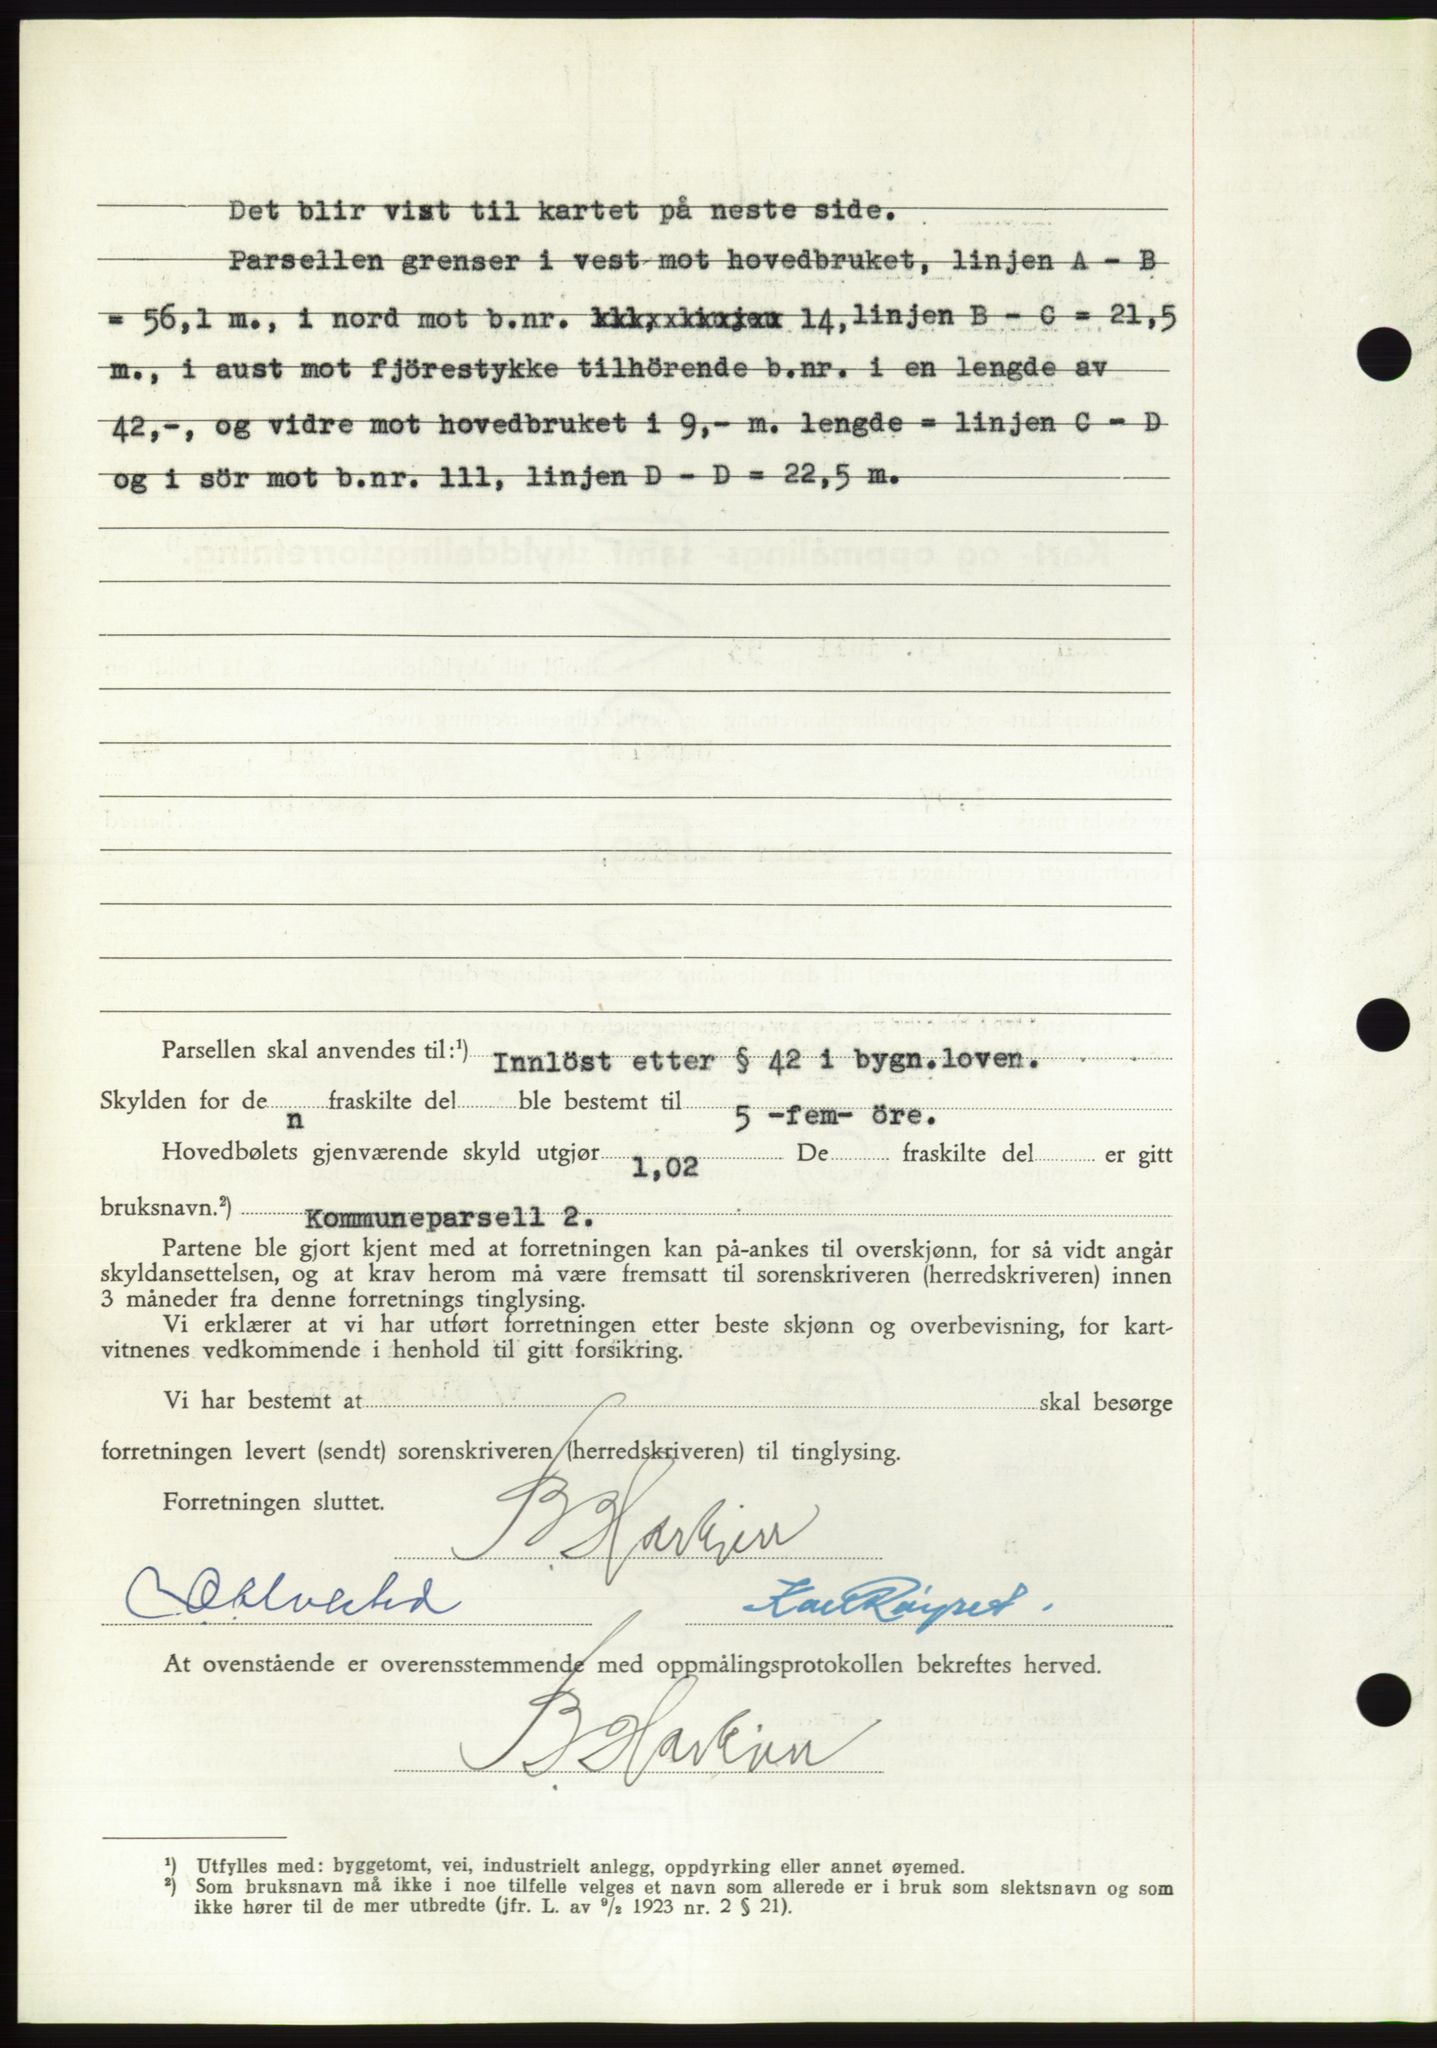 Det blir vist til kartet på neste side.
Parsellen grenser i vest mot hovedbruket, linjen A - B
= 56,1 m., i nord mot b.nr. 14, linjen B - C = 21,5
m., i aust mot fjörestykke tilhörende b.nr. i en lengde av
42,-, og vidre mot hovedbruket i 9,- m. lengde = linjen C - D
og i sör mot b.nr. 111, linjen D - D = 22,5 m.
Parsellen skal anvendes til:¹) Innlöst etter § 42 i bygn.loven.
Skylden for de n fraskilte del ble bestemt til 5 -fem- öre.
Hovedbølets gjenværende skyld utgjør 1,02 De fraskilte del er gitt
bruksnavn.²) Kommuneparsell 2.
Partene ble gjort kjent med at forretningen kan på-ankes til overskjønn, for så vidt angår
skyldansettelsen, og at krav herom må være fremsatt til sorenskriveren (herredskriveren) innen
3 måneder fra denne forretnings tinglysing.
Vi erklærer at vi har utført forretningen etter beste skjønn og overbevisning, for kart-
vitnenes vedkommende i henhold til gitt forsikring.
Vi har bestemt at skal besørge
forretningen levert (sendt) sorenskriveren (herredskriveren) til tinglysing.
Forretningen sluttet.
At ovenstående er overensstemmende med oppmålingsprotokollen bekreftes herved.
¹) Utfylles med: byggetomt, vei, industrielt anlegg, oppdyrking eller annet øyemed.
²) Som bruksnavn må ikke i noe tilfelle velges et navn som allerede er i bruk som slektsnavn og som
ikke hører til de mer utbredte (jfr. L. av ⁹/₂ 1923 nr. 2 § 21).